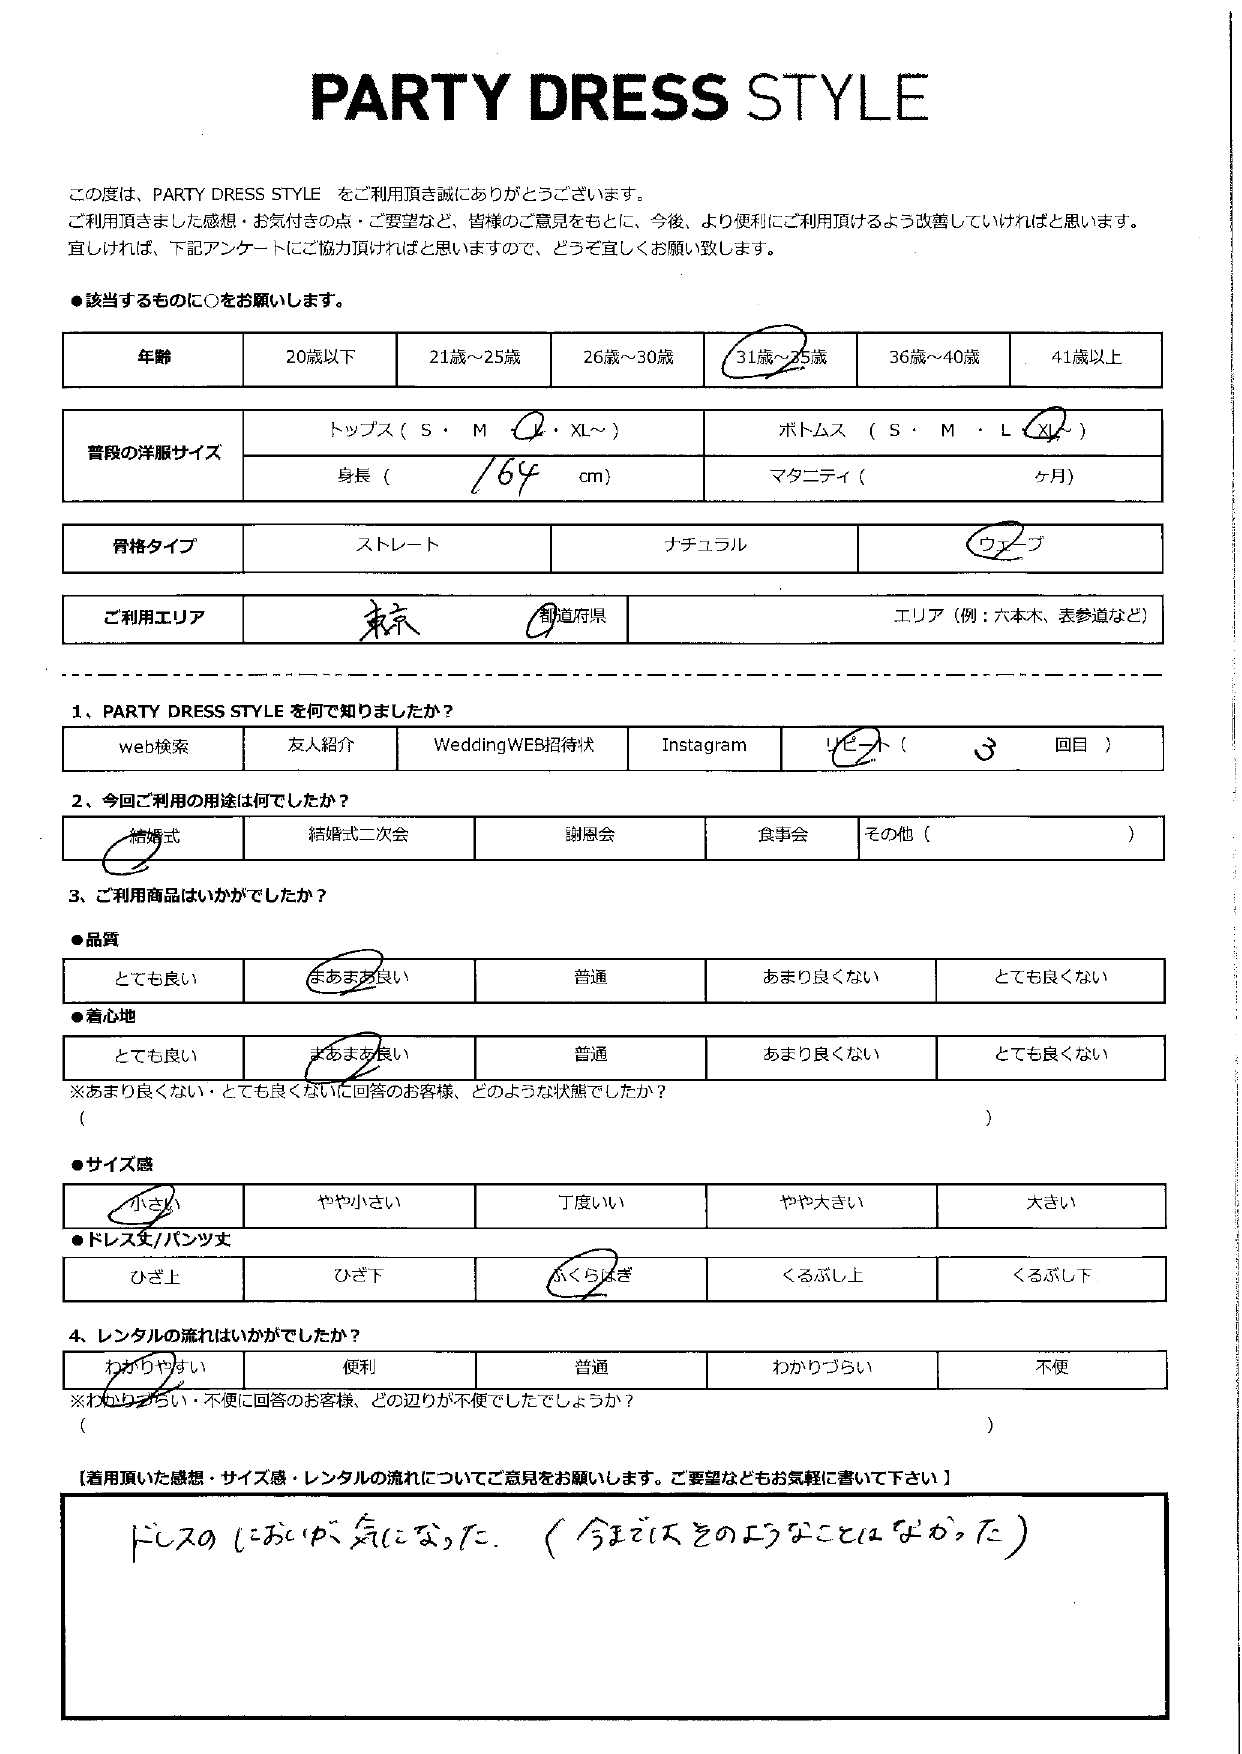 PARTY DRESS STYLE
この度は、PARTY DRESS STYLE　をご利用頂き誠にありがとうございます。
ご利用頂きました感想・お気付きの点・ご要望など、皆様のご意見をもとに、今後、より便利にご利用頂けるよう改善していければと思います。
宜しければ、下記アンケートにご協力頂ければと思いますので、どうぞ宜しくお願い致します。
●該当するものに○をお願いします。
年齢 20歳以下 21歳～25歳 26歳～30歳 31歳～35歳 36歳～40歳 41歳以上
普段の洋服サイズ トップス ( S ・ M ・ L ・ XL～ ) ボトムス ( S ・ M ・ L ・ XL～ )
身長 ( 164 cm) マタニティ ( ヶ月)
骨格タイプ ストレート ナチュラル ウェーブ
ご利用エリア 東京 都道府県 エリア（例：六本木、表参道など）
1、PARTY DRESS STYLE を何で知りましたか？
web検索 友人紹介 WeddingWEB招待状 Instagram リピート ( 3 回目 )
2、今回ご利用の用途は何でしたか？
結婚式 結婚式二次会 謝恩会 食事会 その他 ( )
3、ご利用商品はいかがでしたか？
●品質
とても良い まあまあ良い 普通 あまり良くない とても良くない
●着心地
とても良い まあまあ良い 普通 あまり良くない とても良くない
※あまり良くない・とても良くないに回答のお客様、どのような状態でしたか？
( )
●サイズ感
小さい やや小さい 丁度いい やや大きい 大きい
●ドレス丈/パンツ丈
ひざ上 ひざ下 ふくらはぎ くるぶし上 くるぶし下
4、レンタルの流れはいかがでしたか？
わかりやすい 便利 普通 わかりづらい 不便
※わかりづらい・不便に回答のお客様、どの辺りが不便でしたでしょうか？
( )
【着用頂いた感想・サイズ感・レンタルの流れについてご意見をお願いします。ご要望などもお気軽に書いて下さい 】
ドレスの においが 気になった. ( 今まではそのようなことはなかった )